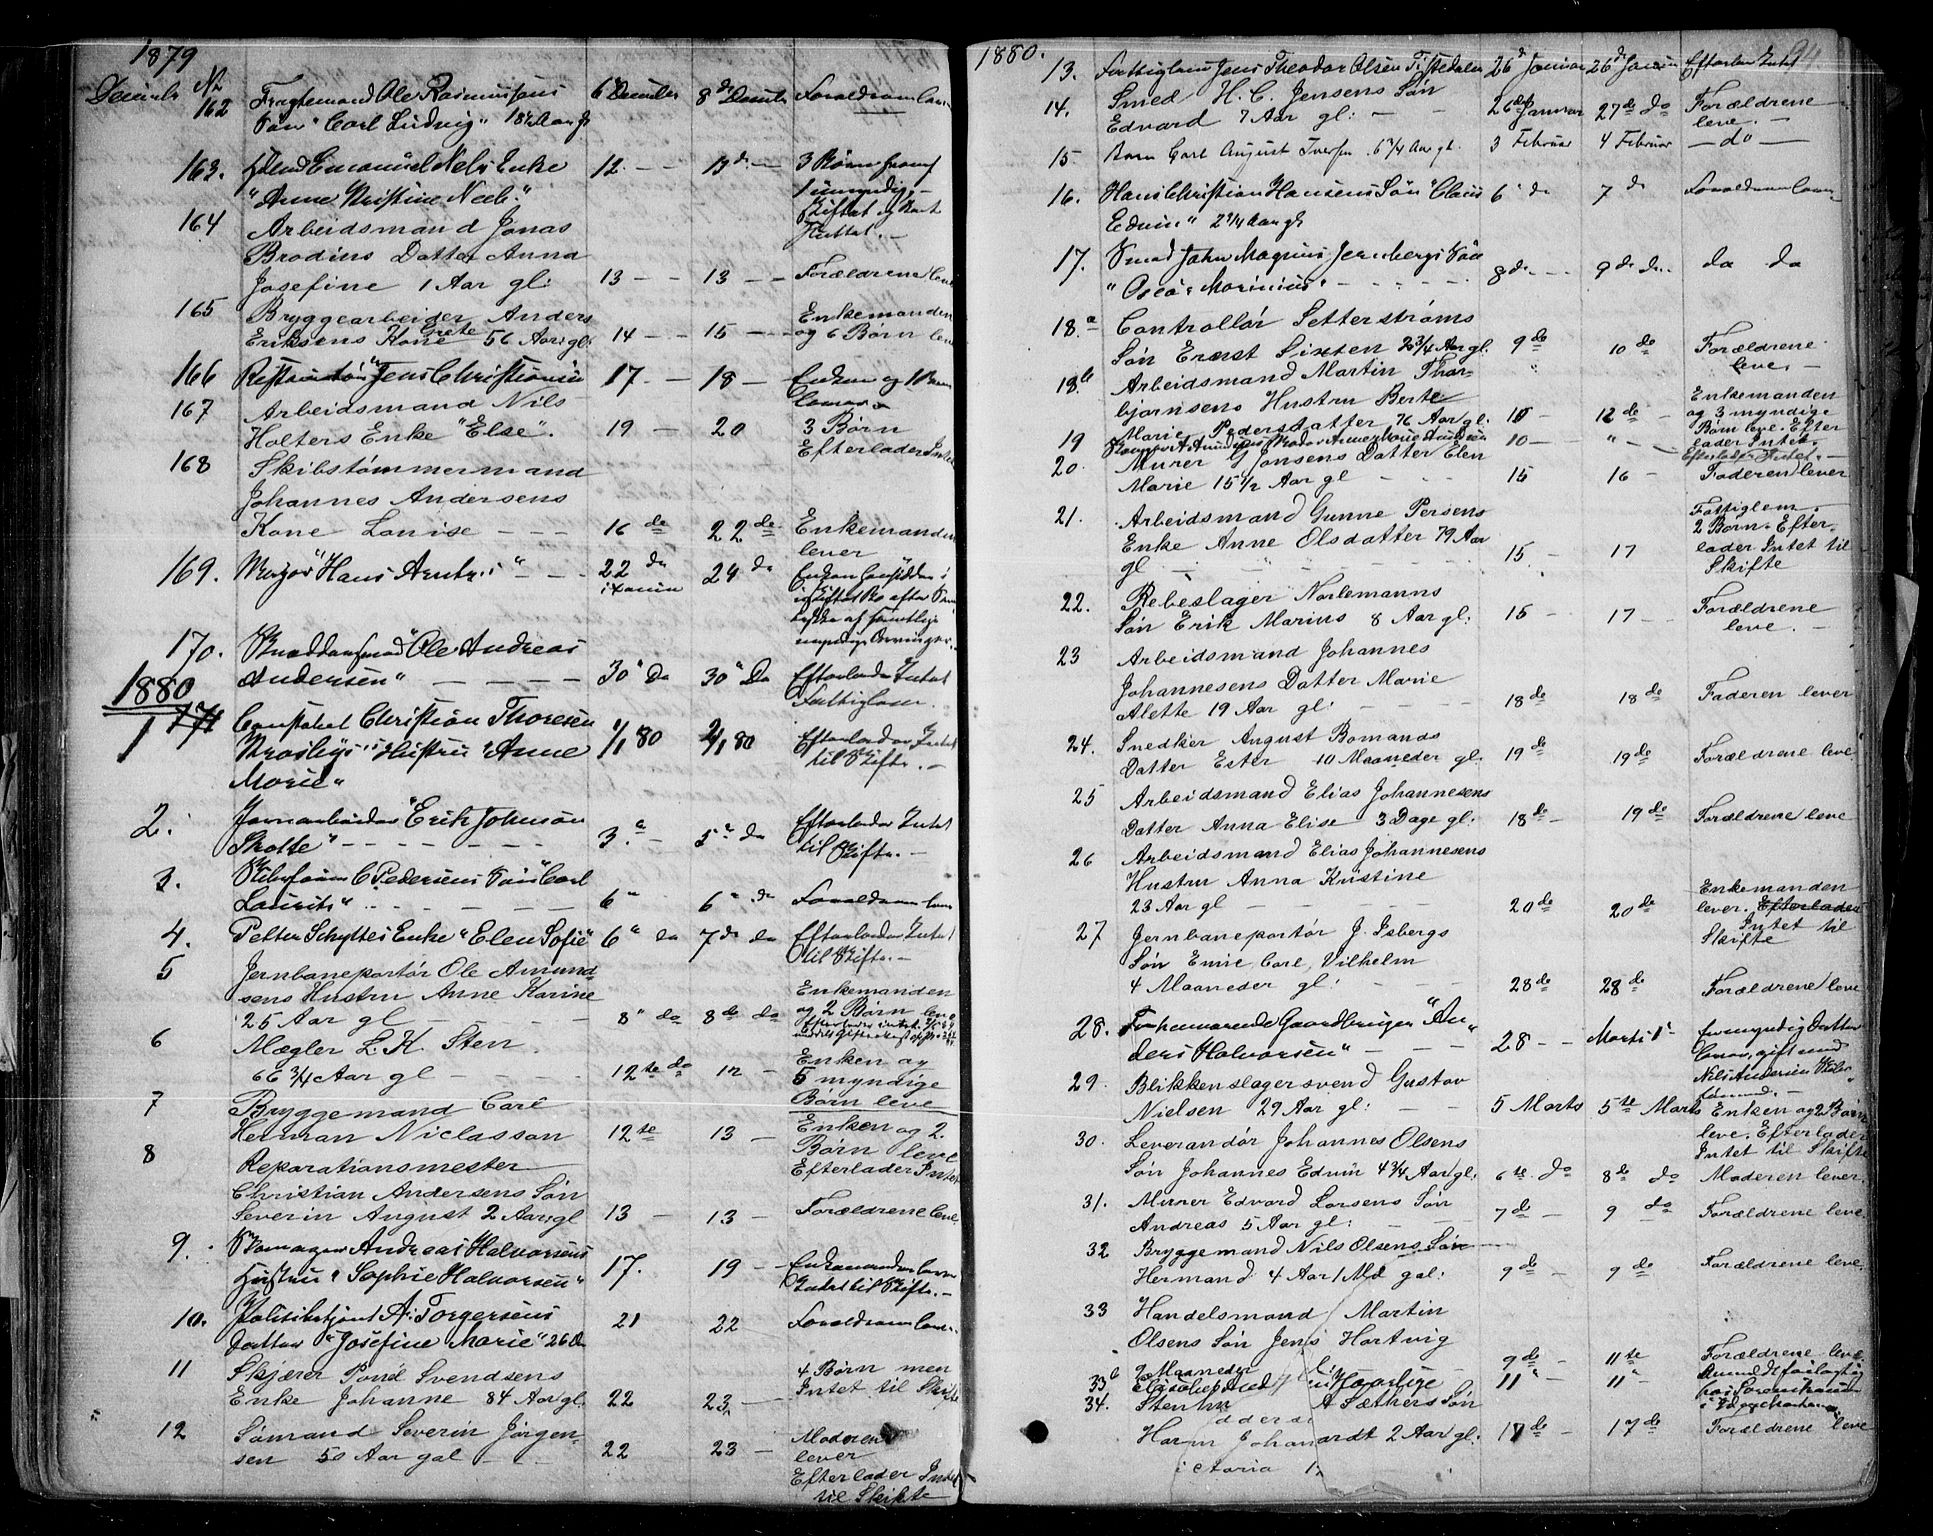 1879
Decemb No
162 Fragtemand Ole Rasmussens 6 December 8 de Decemb Forældrene leve
Søn "Carl Ludvig" 18 Aar gl
163. Emanuel Neels Enke 12. - 19 de - 3 Børn hvoraf
"Anne Kristine Neels." 1 umyndig.
Skiftet og Boet
sluttet. -
164 Arbeidsmand Jonas
Brodins Datter Anna
Josefine 1 Aar gl: 13 - - 13 - - Forældrene leve
165 Bryggearbeider Anders Enkemanden
Eriksens Kone Grete 56 Aar gl. 14 - - 15 - - og 6 Børn leve
166 Restauratør "Jens Christiansen 17. - 18 - Enken og 1 Barn
lever
167 Arbeidsmand Nils
Holters Enke "Else". 19 - 20 3 Børn
Efterlader Intet
168 Skibstømmermand
Johannes Andersens
Kone Lovise - - - 16 de 22 de Enkemanden
lever
169. Major "Hans Arntz" - - - 22 de 24 de Enken hensidder i
uskiftet Bo efter Sam-
tykke af samtlige
myndige Arvinger.
170. Ole Andreas
Andersen" - - - - 30" Do 30" Do Efterlader Intet
Fattiglem.
1880
1 171 Constabel Christian Thoresen 1/1 80 2/1 80 Efterlader Intet
Hustru "Anne til Skifte. -
Marie"
2. Jernarbeider "Erik Johnsen 3." - 5" do Efterlader Intet
Skotte" - - - - - til Skifte. -
3. C Pedersens Søn "Carl
Laurits" - - - - 6" 6" do Forældrene leve
4. Pelter Schyttes Enke "Elen Sofie" 6" do 7 de do Efterlader Intet
til Skifte. -
5 Jernbaneportør Ole Amund-
sens Hustru Anne Karine Enkemanden
25 Aar gl - - - 8" do 8 de do og 2 Børn leve
6 Mægler L. K. Sten
66 3/4 Aar gl - - - - 12 te do 12 - Enken og
5 myndige
Børn leve
7 Bryggemand Carl
Herman Niclasson 12 te 13 - Enken og 2.
Børn leve
Efterlader Intet
8 Reparationsmester
Christian Andersens Søn
Severin August 2 Aar gl 13 - 13 - Forældrene leve.
9. Skomager Andreas Halvorsens
Hustru "Sophie Halvorsen" 17. 19 - Enkemanden lever
Intet til Skifte. -
10. Politibetjent A. Torgersens 21 22 Forældrene leve.
Datter "Josefine Marie" 26 D
11 Skjærer Povel Svendsens 4 Børn men
Enke Johanne 84 Aar gl. 22 23 - Intet til Skifte
12 Sømand Severin Jørgen-
sen 50 Aar gal - - 22 23 - Moderen
lever
Efterlader Intet
til Skifte
1880. 94
13. Fattiglem Jens Theodor Olsen Tistedalen 26 de Januar 26 de Januar Efterlader Intet
14. Smed H. C. Jensens Søn
Edvard 7 Aar gl: - - 26 de Januar 27 de do Forældrene
leve. -
15 Barn Carl August Iversen 6 3/4 Aar gl. 3 Februar 4 Februar - do -
16. Hans Christian Hansens Søn "Claus 6" do 7 de Forældrene leve
Edvin" 2 3/4 Aar gl
17. Smed John Magnus Jernbergs Søn
"Oscar Marinius" - - - - 8 de - - 9 de do. do do
18.a Controllør Setterstrøms
Søn Ernst Sixten 2 3/4 Aar gl. 9 de 10 de Forældrene
leve. -
18b Arbeidsmand Martin Thor-
bjørnsens Hustru Berte
Marie Pedersdatter 76 Aar gl. 10 - 12 de - Enkemanden
og 3 myndige
Børn leve. Efter
lader Intet.
19 A. Amundsens Moder Anne Marie Amundsen 10 - " - Efterlader Intet. -
20. Murer G Jonsens Datter Elen
Marie 15 1/2 Aar gl - - - 15 16 - Faderen lever
21. Arbeidsmand Gunne Persens Fattiglem.
Enke Anne Olsdatter 79 Aar 2 Børn. Efter-
gl - - - 15 - 17 lader Intet til
Skifte
22. Rebeslager Norlemanns
Søn Erik Marius 8 Aar gl: 15 - 17 - Forældrene
leve. -
23 Arbeidsmand Johannes
Johannesens Datter Marie
Alette 19 Aar gl: - - - 18 de 18 de Faderen lever
24. Snedker August Bomands
Datter Ester 10 Maaneder gl: 19 de 19 de Forældrene leve
25 Arbeidsmand Elias Johannesens
Datter Anna Elise 3 Dage gl: 18 de - 19 de Forældrene leve
26 Arbeidsmand Elias Johannesens
Hustru Anna Kristine
23 Aar gl - - - - 20 de 20 de Enkemanden
lever. Efterlader
Intet til
Skifte
27 Jernbaneportør J. Isbergs
Søn Emil Carl Vilhelm
4 Maaneder gl: - - - 28 de 28 de Forældrene leve
28. Forhenværende Gaardbruger "An-
ders Halvorsen" - - - 28 - - Marts 1" En myndig Datter
lever, gift med
Nils Andersen
29. Blikkenslagersvend Gustav
Nielsen 29 Aar gl: - - 5 Marts 5 te Marts Enken og 2 Børn
leve. Efterlader
Intet til Skifte
30. Leverandør Johannes Olsens
Søn Johannes Edvin 4 3/4 Aar gl: 6 te do 8 de do Moderen lever.
31. Murer Edvard Larsens Søn
Andreas 5 Aar gl: - - - 7 de - 9 do Forældrene leve.
32 Bryggemand Nils Olsens Søn
Hermand 4 Aar 1 Md gal: 9 de - 9 de Forældrene leve.
33 Handelsmand Martin
Olsens Søn Jens Hartvig
2 Maaneder 9 de - 11 te Forældrene leve.
33b 11" - 11" -
34. A Sæthers Søn
2 Aar gl: 17 de - 17 de Forældrene leve